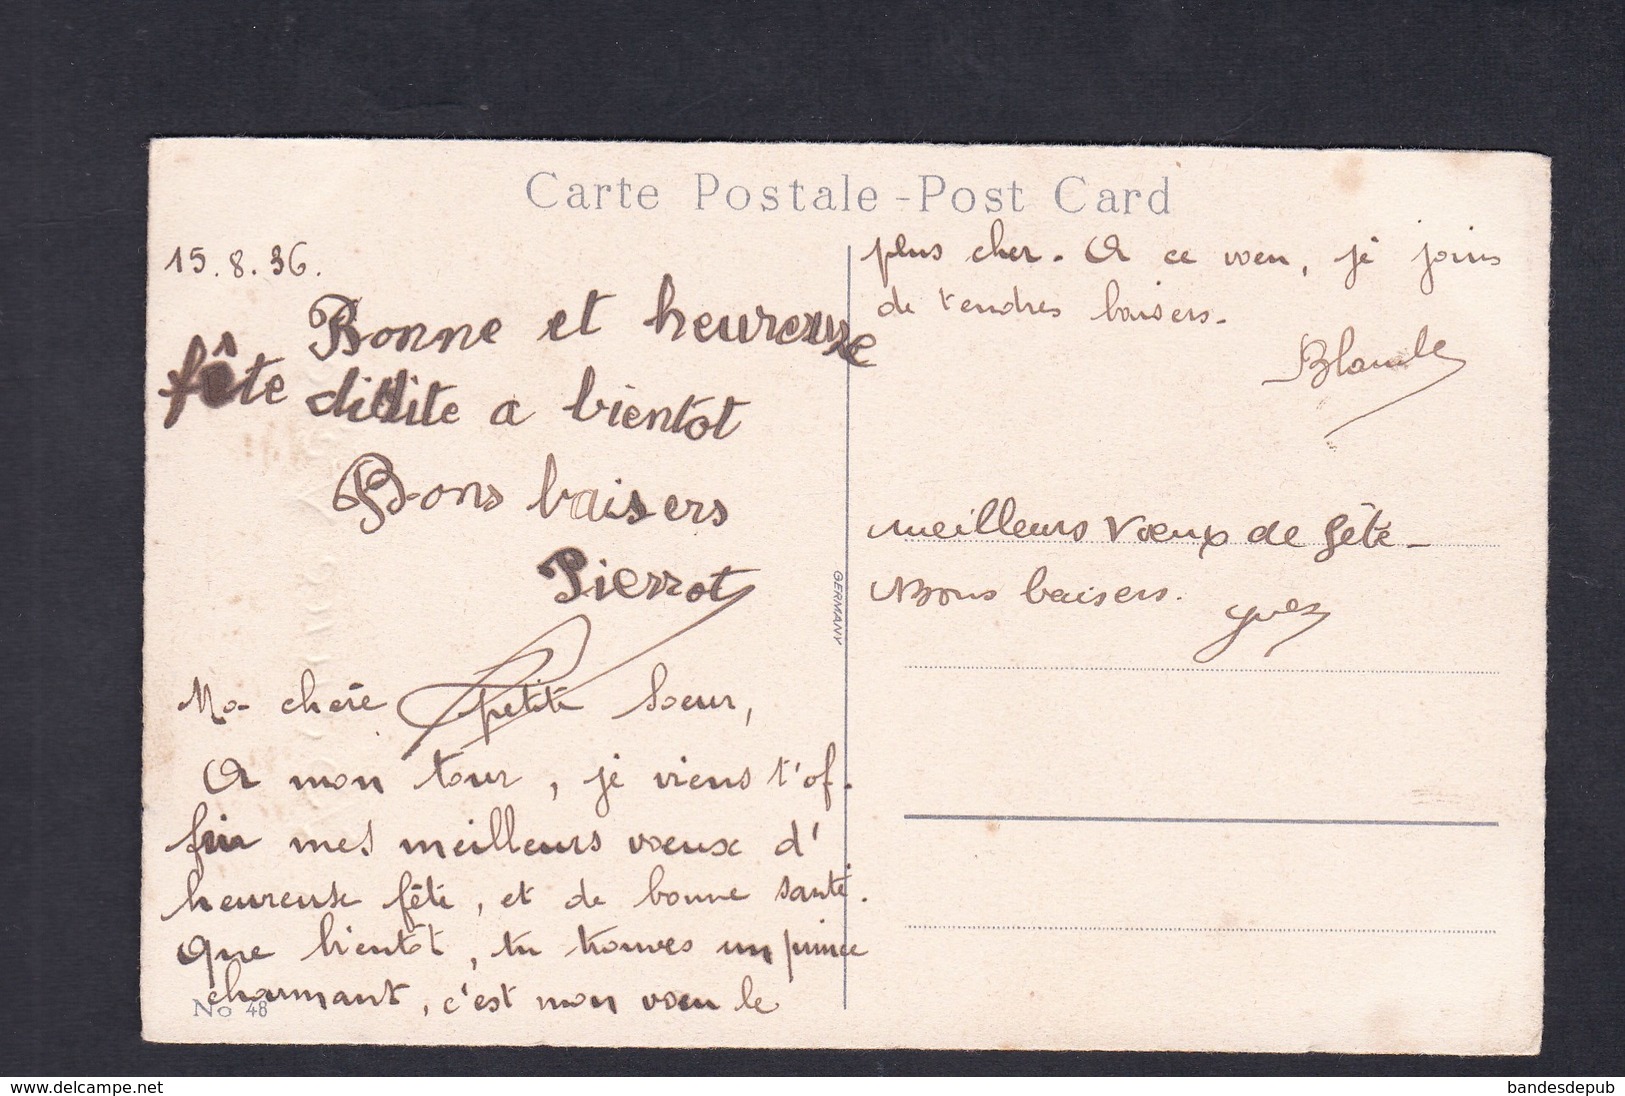 Carte Postale - Post Card
15.8.36.
Bonne et heureuse
fête dillite a bientot
Bons baisers
Pierrot
Ma chère petite soeur,
A mon tour, je viens t'of-
frir mes meilleurs voeux d'
heureuse fête, et de bonne santé.
Que bientôt, tu trouves un prince
charmant, c'est mon voeu le
No 48
GERMANY
plus cher. A ce voeu, je joins
de tendres baisers.
meilleurs voeux de fête -
Bons baisers.
Yves
www.delcampe.net
bandesdepub